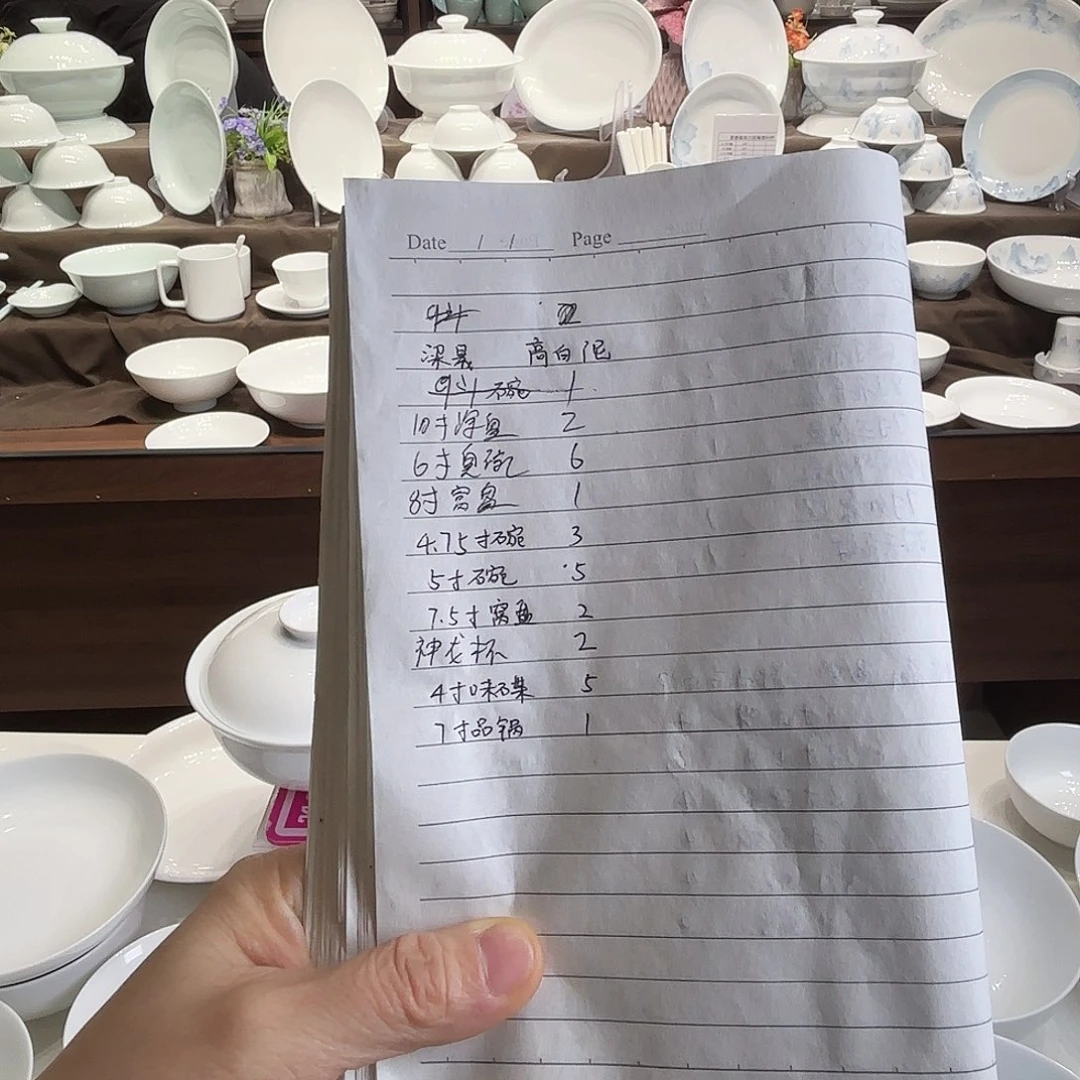 Date / / Page
高白泥
碗 1
10寸深盘 2
6寸奥碗 6
8寸窝盘 1
4.75寸碗 3
5寸碗 5
7.5寸窝盘 2
神龙杯 2
4寸味碟 5
7寸品锅 1